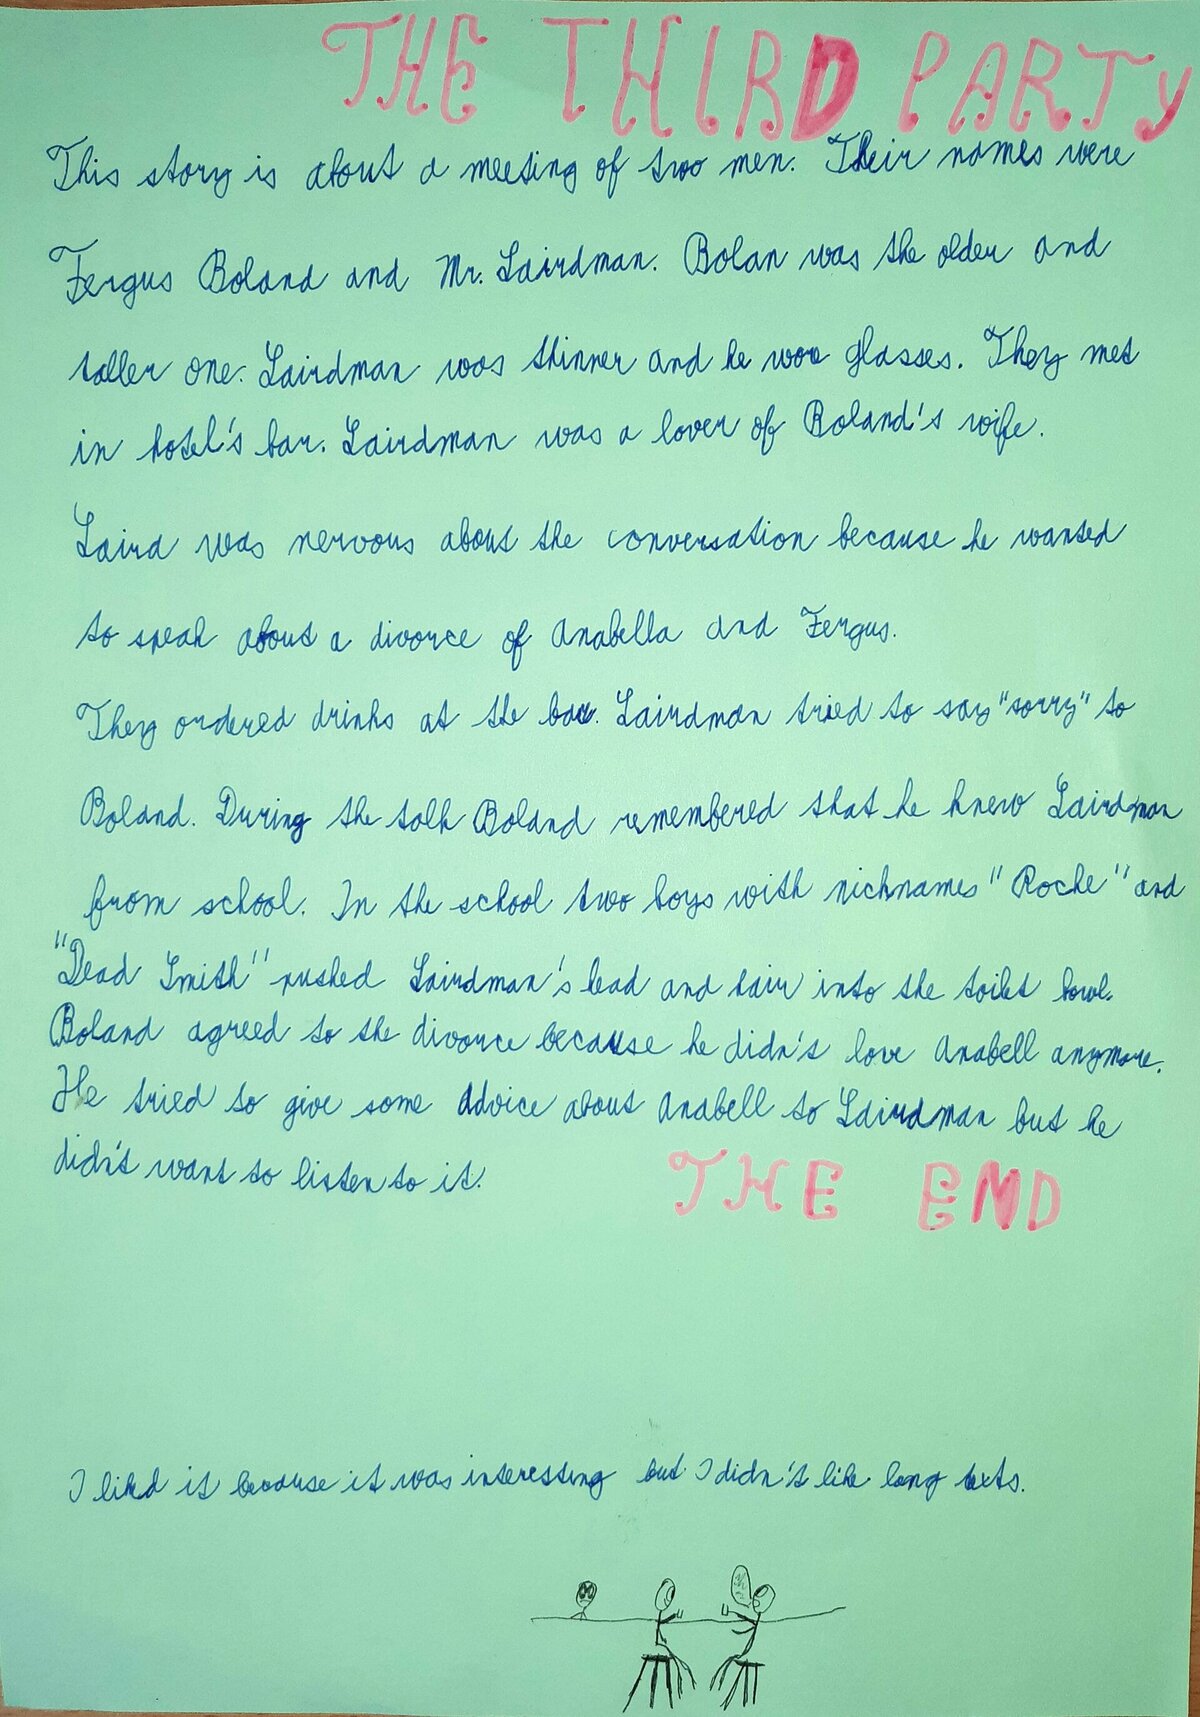 THE THIRD PARTY
This story is about a meeting of two men. Their names were
Fergus Boland and Mr. Lairdman. Bolan was the older and
taller one. Lairdman was thinner and he wore glasses. They met
in hotel's bar. Lairdman was a lover of Boland's wife.
Laird was nervous about the conversation because he wanted
to speak about a divorce of Anabella and Fergus.
They ordered drinks at the bar. Lairdman tried to say "sorry" to
Boland. During the talk Boland remembered that he knew Lairdman
from school. In the school two boys with nicknames "Roche" and
"Dead Smith" pushed Lairdman's head and hair into the toilet bowl.
Boland agreed to the divorce because he didn't love Anabell anymore.
He tried to give some advice about Anabell to Lairdman but he
didn't want to listen to it.
THE END
I liked it because it was interesting but I didn't like long texts.